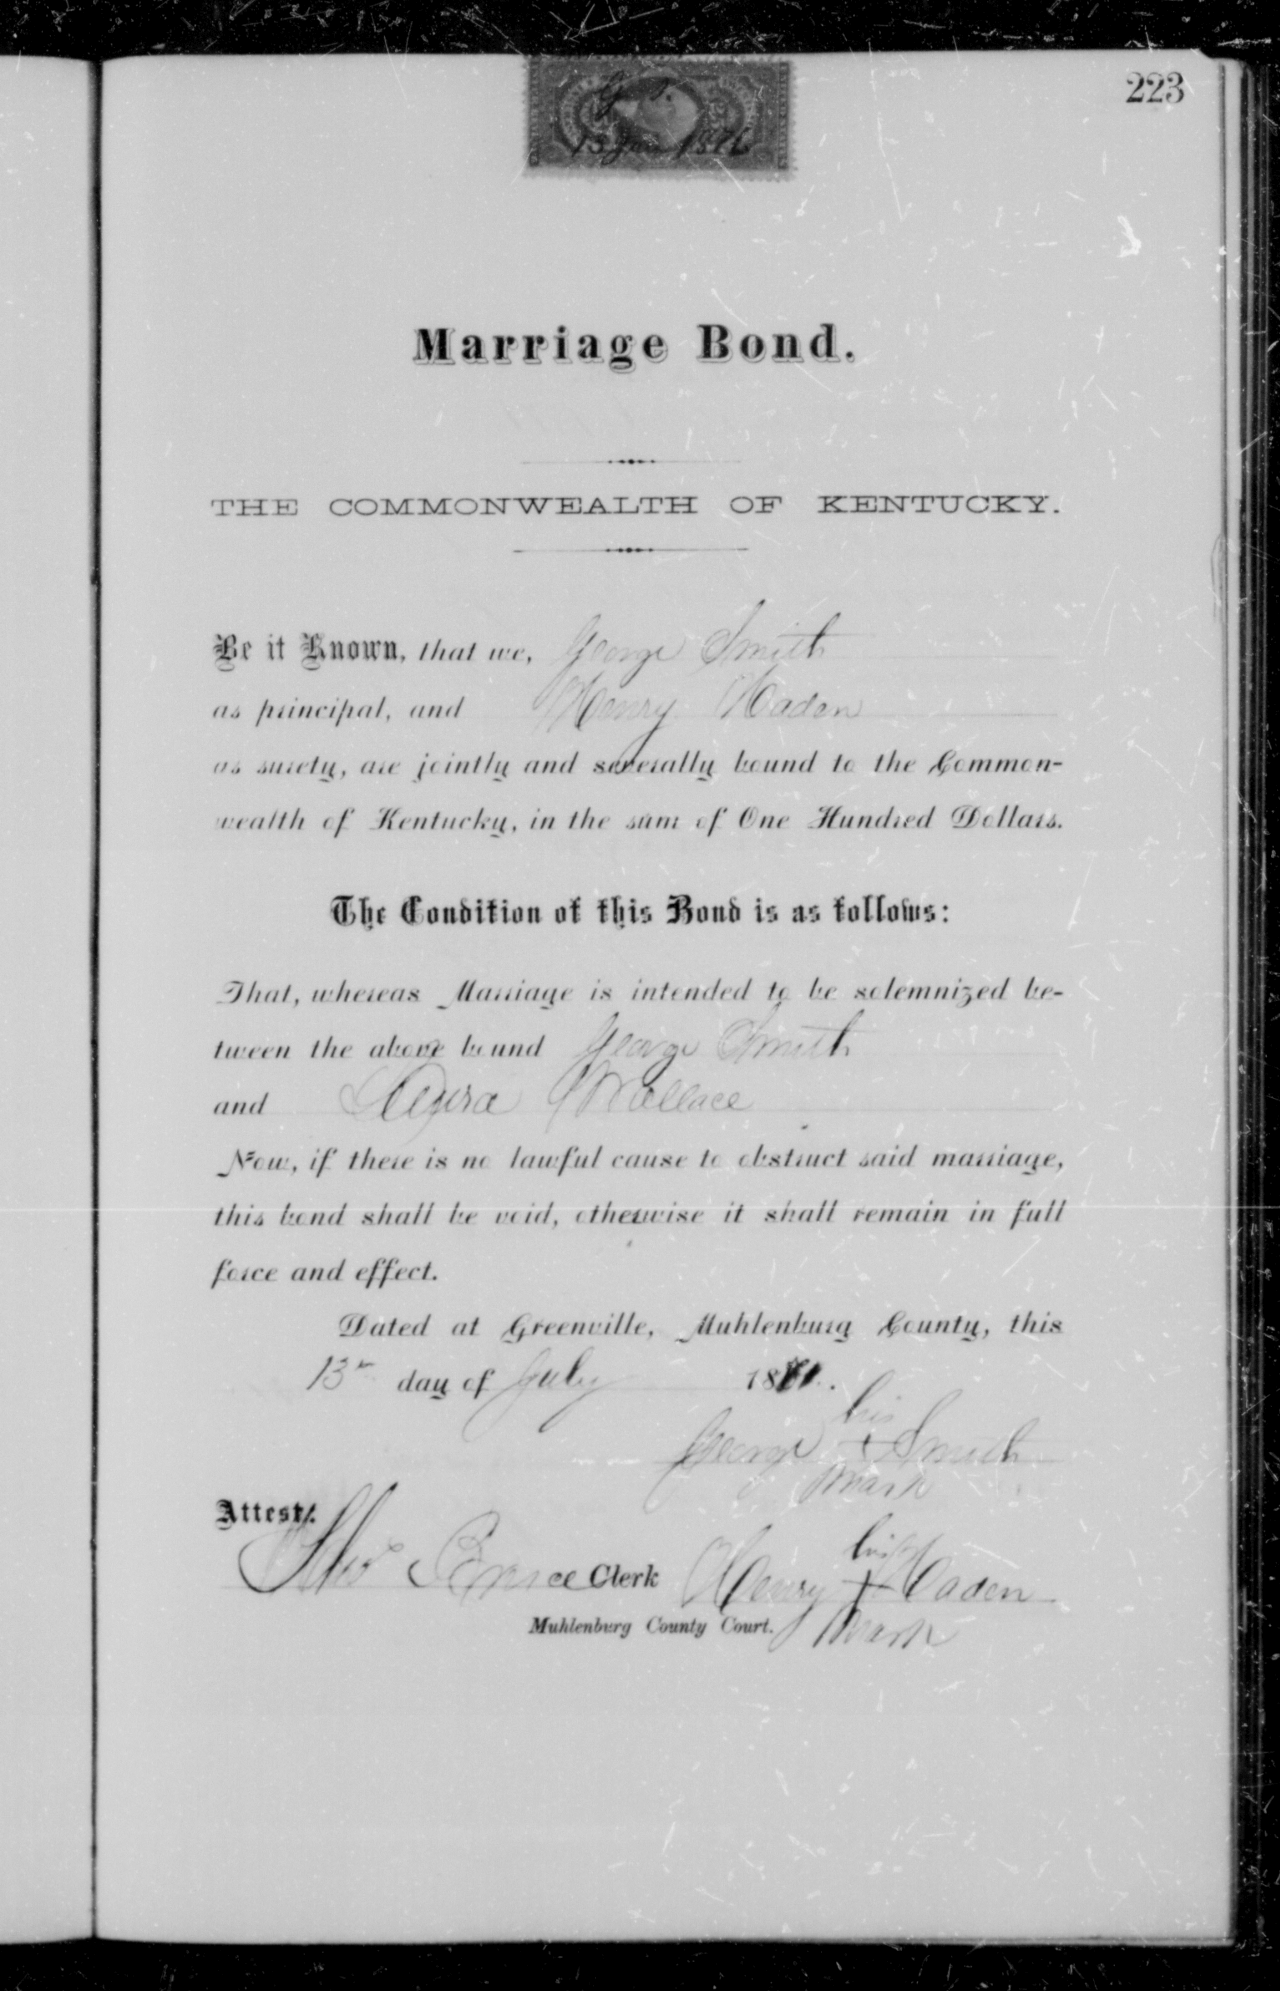 223
G S.
13 1871
Marriage Bond.
THE COMMONWEALTH OF KENTUCKY.
Be it Known, that we, George Smith
as principal, and Henry Haden
as surety, are jointly and severally bound to the Common-
wealth of Kentucky, in the sum of One Hundred Dollars.
The Condition of this Bond is as follows:
That, whereas Marriage is intended to be solemnized be-
tween the above bound George Smith
and Laura Wallace
Now, if there is no lawful cause to obstruct said marriage,
this bond shall be void, otherwise it shall remain in full
force and effect.
Dated at Greenville, Muhlenburg County, this
13th day of July 1871.
his
George + Smith
mark
Attest:
Tho Bruce Clerk
his
Henry + Haden
mark
Muhlenburg County Court.